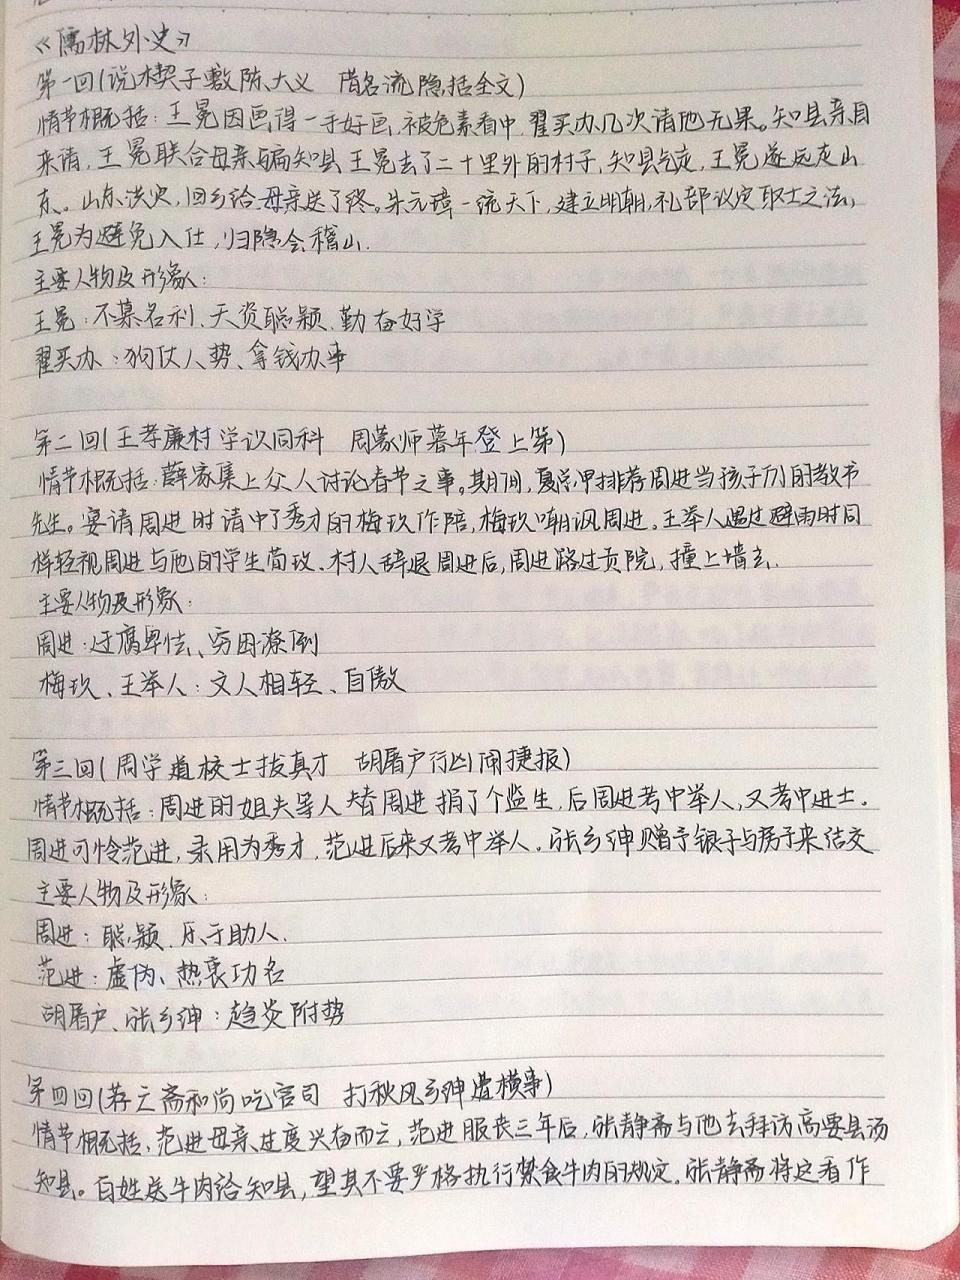 《儒林外史》
第一回(说楔子敷陈大义 借名流隐括全文)
情节概括：王冕因画得一手好画，被危素看中，翟买办几次请他无果。知县亲自
来请，王冕联合母亲骗知县王冕去了二十里外的村子，知县气走，王冕遂远走山
东。山东洪灾，回乡给母亲送了终。朱元璋一统天下，建立明朝，礼部议定取士之法，
王冕为避免入仕，归隐会稽山.
主要人物及形象：
王冕：不慕名利、天资聪颖、勤奋好学
翟买办：狗仗人势、拿钱办事
第二回(王孝廉村学识同科 周蒙师暮年登上第)
情节概括：薛家集上众人讨论春节之事。其间，夏总甲推荐周进当孩子们的教书
先生。宴请周进时请中了秀才的梅玖作陪，梅玖嘲讽周进。王举人遇过避雨时同
样轻视周进与他的学生荀玫、村人辞退周进后，周进路过贡院，撞上墙去.
主要人物及形象：
周进：迂腐卑怯、穷困潦倒
梅玖、王举人：文人相轻、自傲
第三回(周学道校士拔真才 胡屠户行凶闹捷报)
情节概括：周进的姐夫等人替周进捐了个监生，后周进考中举人，又考中进士。
周进可怜范进，录用为秀才，范进后来又考中举人。张乡绅赠予银子与房子来结交
主要人物及形象：
周进：聪颖、乐于助人.
范进：虚伪、热衷功名
胡屠户、张乡绅：趋炎附势
第四回(荐亡斋和尚吃官司 打秋风乡绅遭横事)
情节概括，范进母亲过度兴奋而亡，范进服丧三年后，张静斋与他去拜访高要县汤
知县。百姓送牛肉给知县，望其不要严格执行禁食牛肉的规定。张静斋将定看作